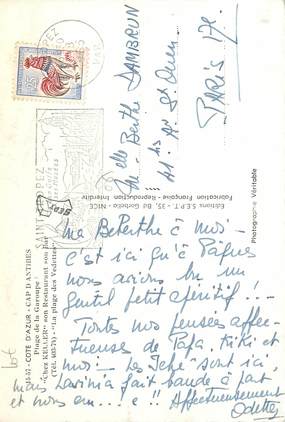 Melle Berthe DAMBRUN
41 bis Av. St Ouen
PARIS 17e.
SAINT-TROPEZ
Photographie Véritable
Éditions S.E.P.T. - 35, Bd Gorbella - NICE
Fabrication Française - Reproduction Interdite
13-57 - COTE D'AZUR - CAP D'ANTIBES
Plage de la Garoupe
"Chez KELLER" son Restaurant son Bar
"La plage des Vedettes"
Ma Beberthe à moi!
C'est ici qu'à Pâques
nous avions bu un
gentil petit apéritif!..
Toutes nos pensées affec-
tueuses de Papa, Kiki et
moi.- Les "Jefs" sont ici,
mais Lavinia fait bande à part
et nous em... e!! Affectueusement
Odette